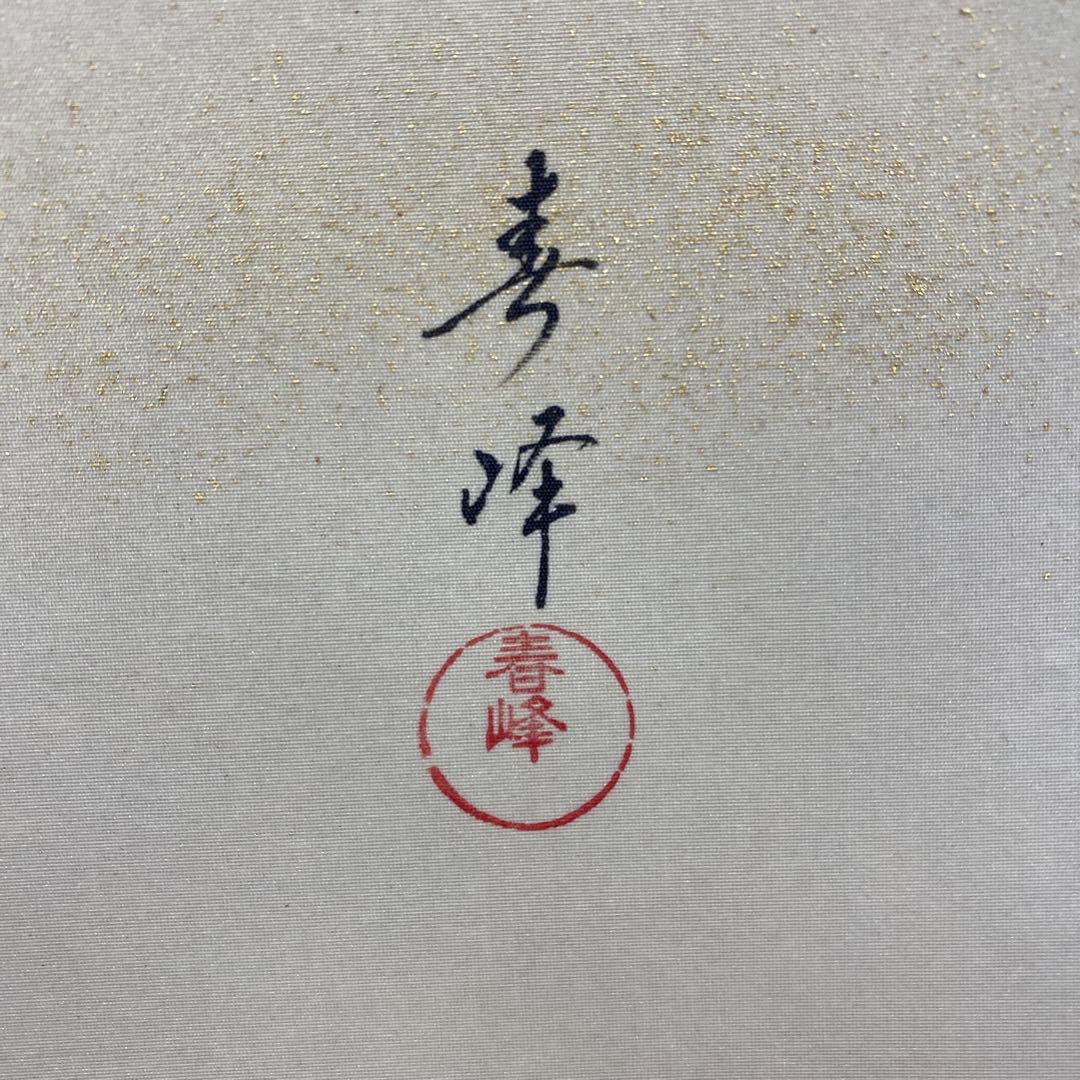 春峰
春峰